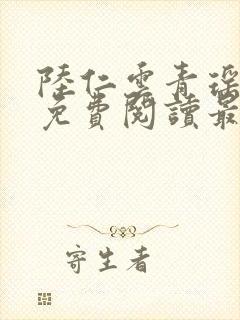 陸仁雲青瑤
免費閱讀最
寄生者